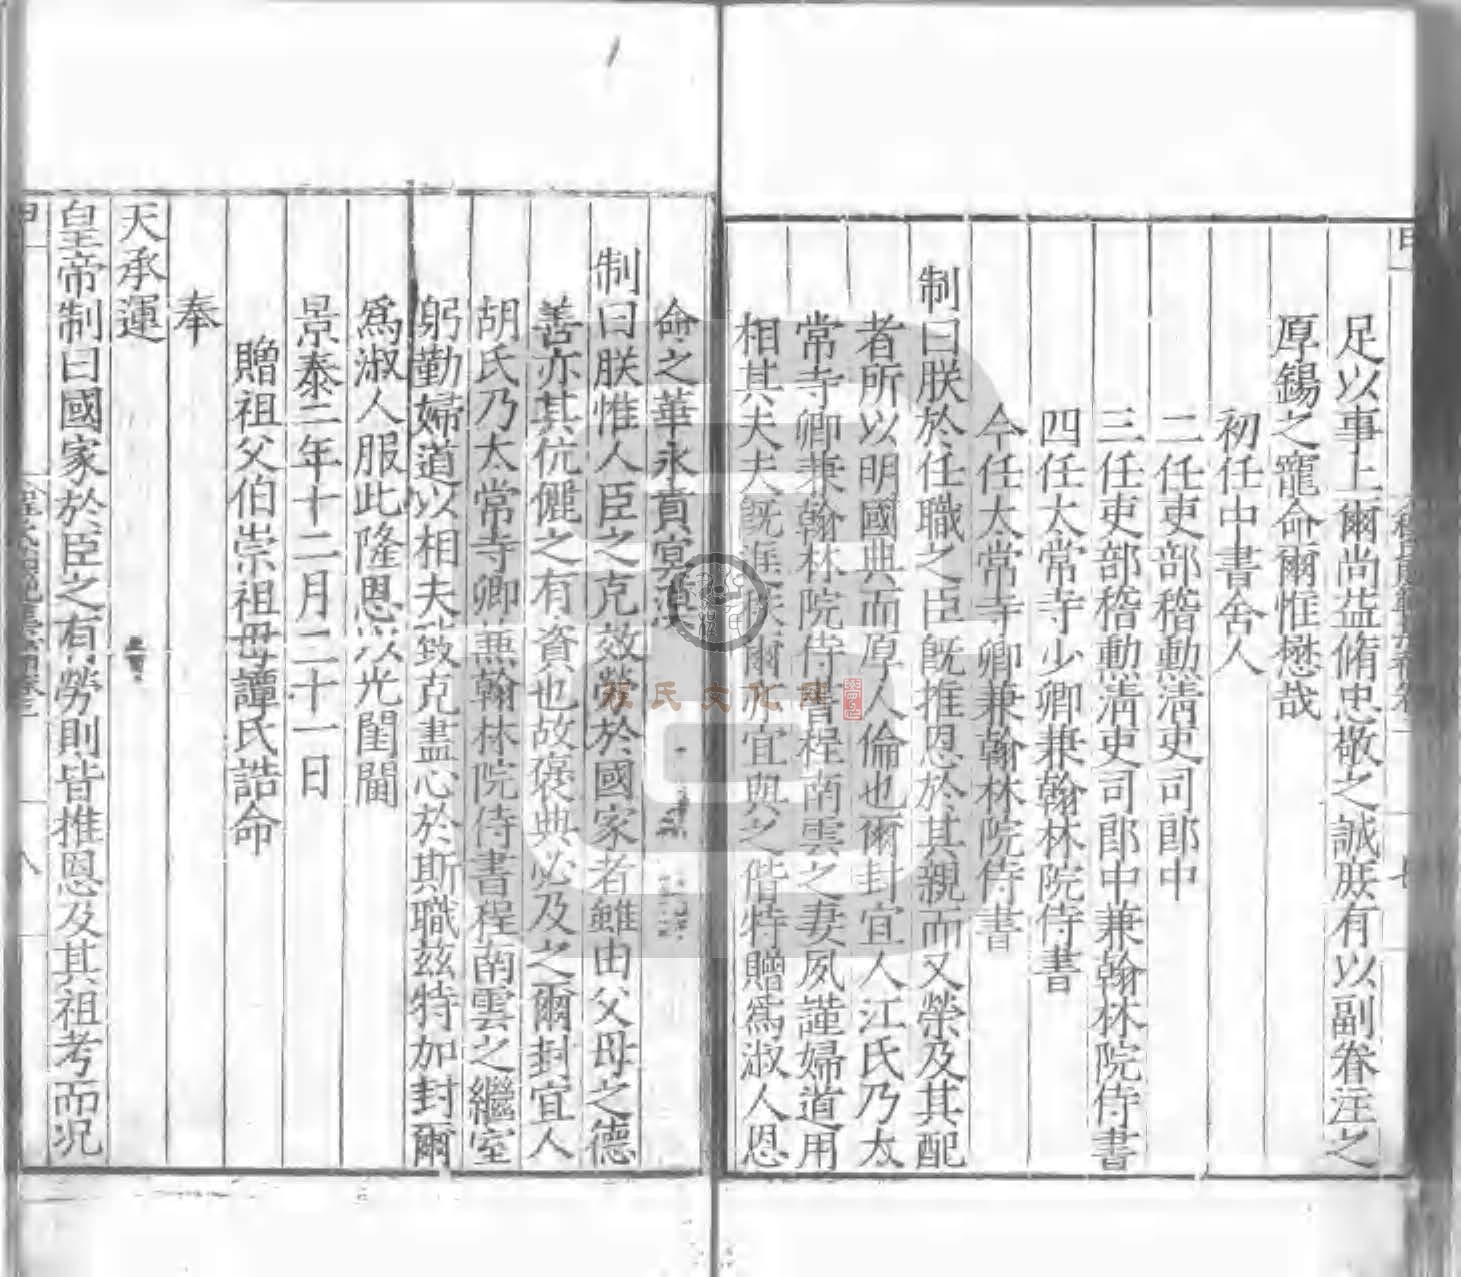 足以事上爾尚益脩忠敬之誠庶有以副眷注之
厚錫之寵命爾惟懋哉
初任中書舍人
二任吏部稽勲清吏司郎中
三任吏部稽勲清吏司郎中兼翰林院侍書
四任太常寺少卿兼翰林院侍書
今任太常寺卿兼翰林院侍書
制曰朕於任職之臣旣推恩於其親而又榮及其配
者所以明國典而厚人倫也爾封宜人江氏乃太
常寺卿兼翰林院侍書程南雲之妻夙謹婦道用
相其夫夫旣進爾亦宜與之偕特贈爲淑人恩
命之華永賁冥漠
制曰朕惟人臣之克效勞於國家者雖由父母之德
善亦其伉儷之有資也故褒典必及之爾封宜人
胡氏乃太常寺卿兼翰林院侍書程南雲之繼室
躬勤婦道以相夫致克盡心於斯職茲特加封爾
爲淑人服此隆恩以光閨閫
景泰二年十二月二十一日
贈祖父伯崇祖母譚氏誥命
奉
天承運
皇帝制曰國家於臣之有勞則皆推恩及其祖考而况
八
程氏文化網